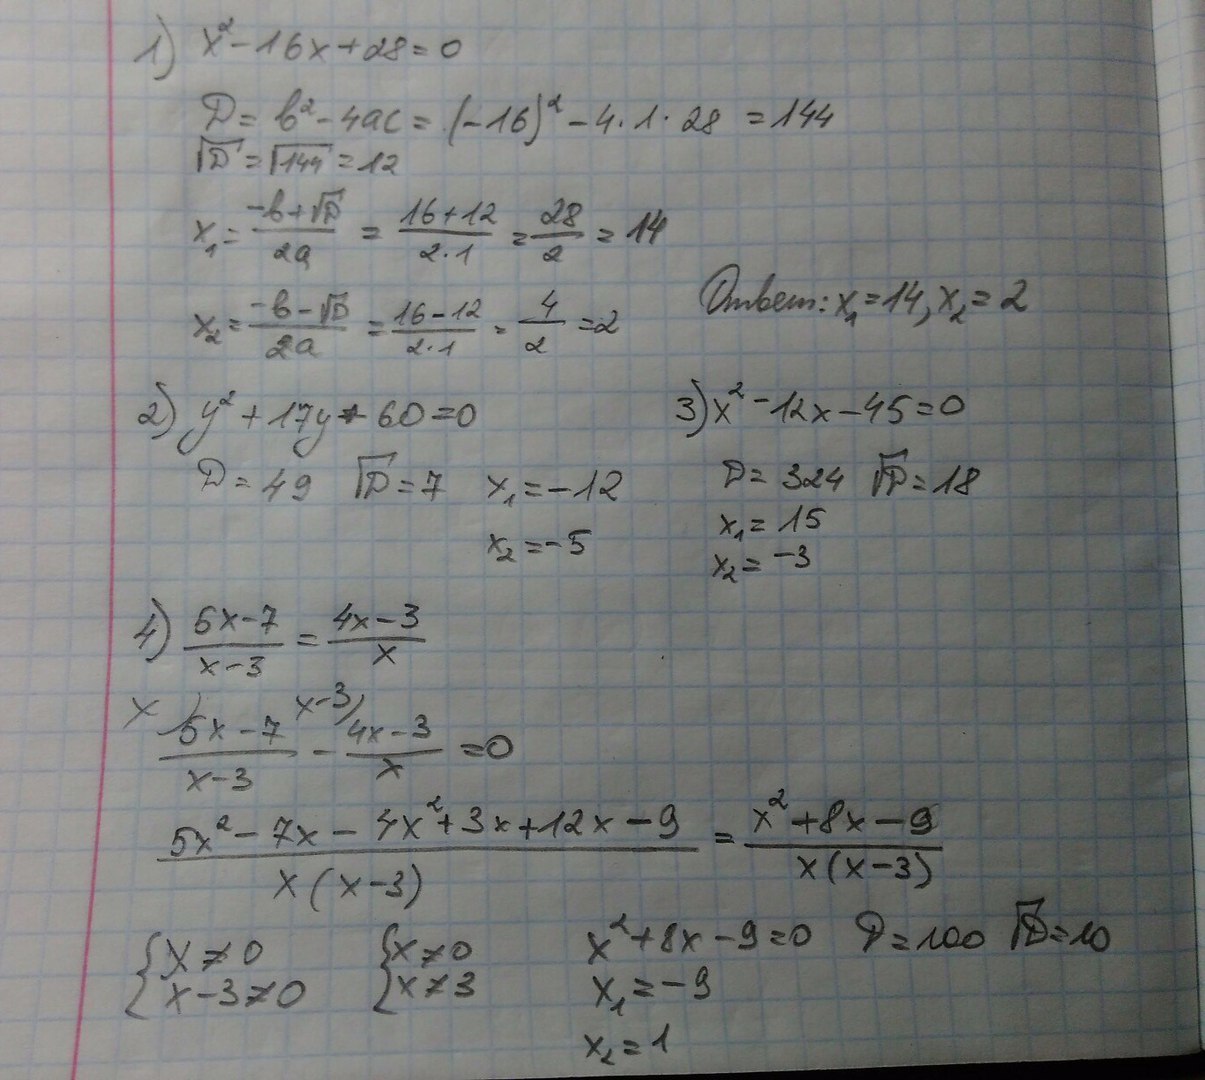 1) x² - 16x + 28 = 0
D = b² - 4ac = (-16)² - 4·1·28 = 144
√D = √144 = 12
x₁ = (-b + √D)/2a = (16 + 12)/(2·1) = 28/2 = 14
x₂ = (-b - √D)/2a = (16 - 12)/(2·1) = 4/2 = 2
Ответ: x₁ = 14, x₂ = 2
2) y² + 17y + 60 = 0
D = 49 √D = 7 x₁ = -12
x₂ = -5
3) x² - 12x - 45 = 0
D = 324 √D = 18
x₁ = 15
x₂ = -3
4) (5x - 7)/(x - 3) = (4x - 3)/x
x) (5x - 7)/(x - 3) - x-3) (4x - 3)/x = 0
(5x² - 7x - 4x² + 3x + 12x - 9)/(x(x - 3)) = (x² + 8x - 9)/(x(x - 3))
{x ≠ 0 {x ≠ 0 x² + 8x - 9 = 0 D = 100 √D = 10
{x - 3 ≠ 0 {x ≠ 3 x₁ = -9
x₂ = 1